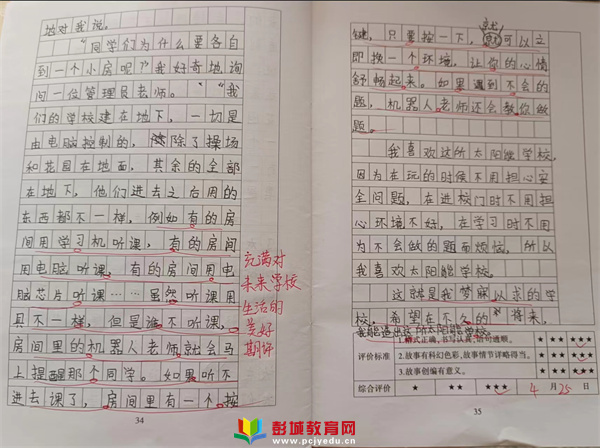 地对我说。
“同学们为什么要各自
到一个小房呢？”我好奇地询
问一位管理员老师。“我
们的学校建在地下，一切是
由电脑控制的，除了操场
和花园在地面，其余的全部
在地下，他们进去之后用的
东西都不一样，例如有的房
间用学习机听课，有的房间
用电脑听课，有的房间用电
脑芯片听课……虽然听课用
具不一样，但是谁不听课，
房间里的机器人老师就会马
上提醒那个同学。如果听不
进去课了，房间里有一个按
充满对
未来学校
生活的
美好
期待
34
键，只要按一下，就可以立
即换一个环境，让你的心情
舒畅起来。如果遇到不会的
题，机器人老师还会教你做
题。
我喜欢这所太阳能学校，
因为在玩的时候不用担心安
全问题，在进校门时不用担
心环境不好，在学习时不用
为不会做的题而烦恼，所以
我喜欢太阳能学校。
这就是我梦寐以求的学
校，希望在不久的将来，
我能造出这所太阳能学校。
评价标准
1.格式正确，书写认真，语句通顺。 ★ ★★ ★★★
2.故事有科幻色彩，故事情节详略得当。 ★ ★★ ★★★
3.故事创编有意义。 ★ ★★ ★★★
综合评价 ★ ★★ ★★★ 4月25日
35
彭城教育网
www.pcjyedu.cn